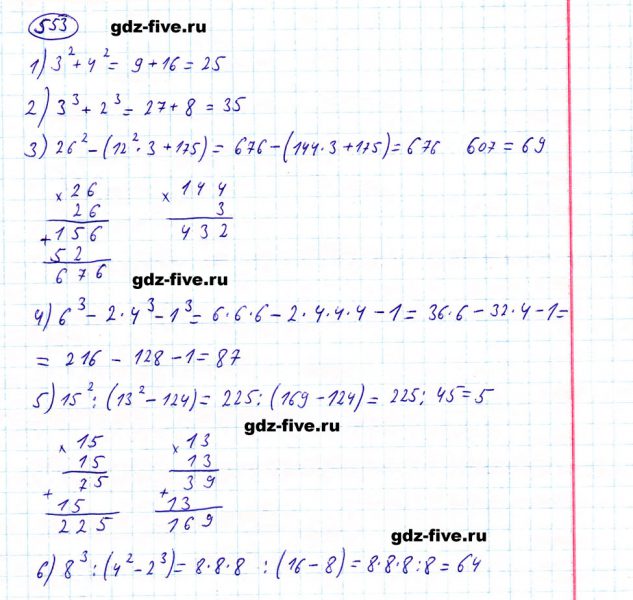 553 gdz-five.ru
1) 3²+4²= 9+16=25
2) 3³+2³=27+8=35
3) 26²-(12²·3+175)=676-(144·3+175)=676 607=69
× 26 × 144
26 3
+156 432
52
676
gdz-five.ru
4) 6³-2·4³-1³=6·6·6-2·4·4·4-1=36·6-32·4-1=
=216-128-1=87
5) 15²:(13²-124)=225:(169-124)=225:45=5
gdz-five.ru
× 15 × 13
15 13
+ 75 + 39
15 13
225 169
gdz-five.ru
6) 8³:(4²-2³)=8·8·8 :(16-8)=8·8·8:8=64